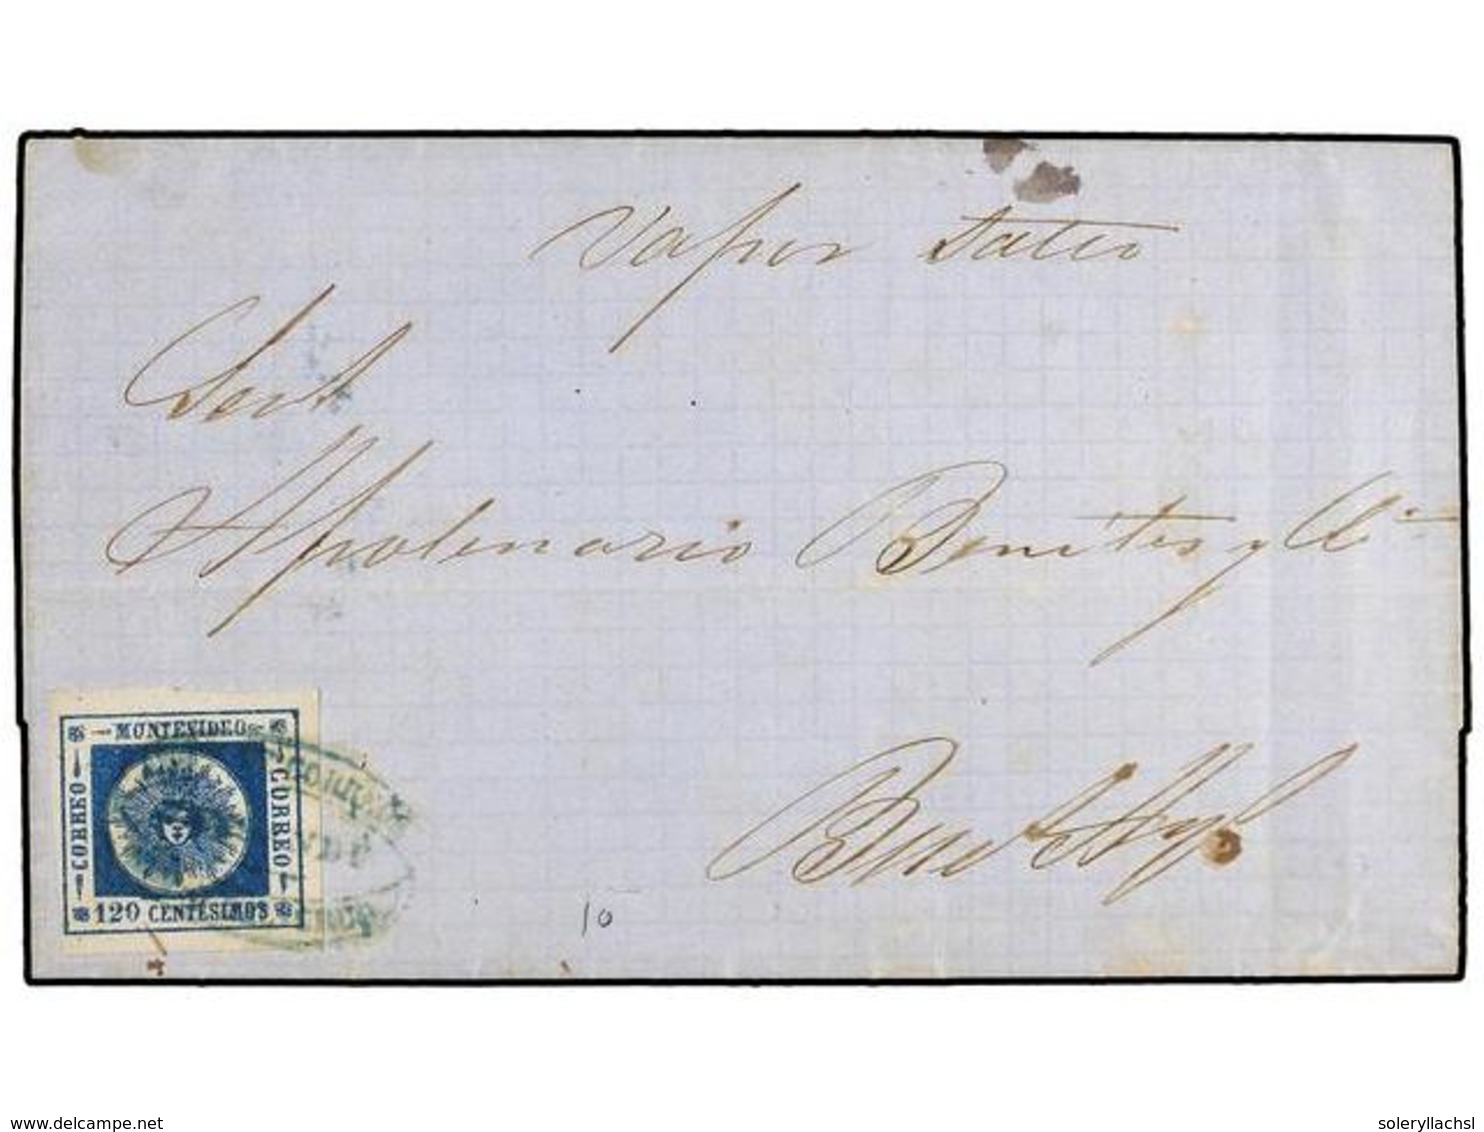 Vapor Salto
Apolenario Benites y Ca
MONTEVIDEO
CORREO
CORREO
120 CENTESIMOS
10
www.delcampe.net
soleryllachsl